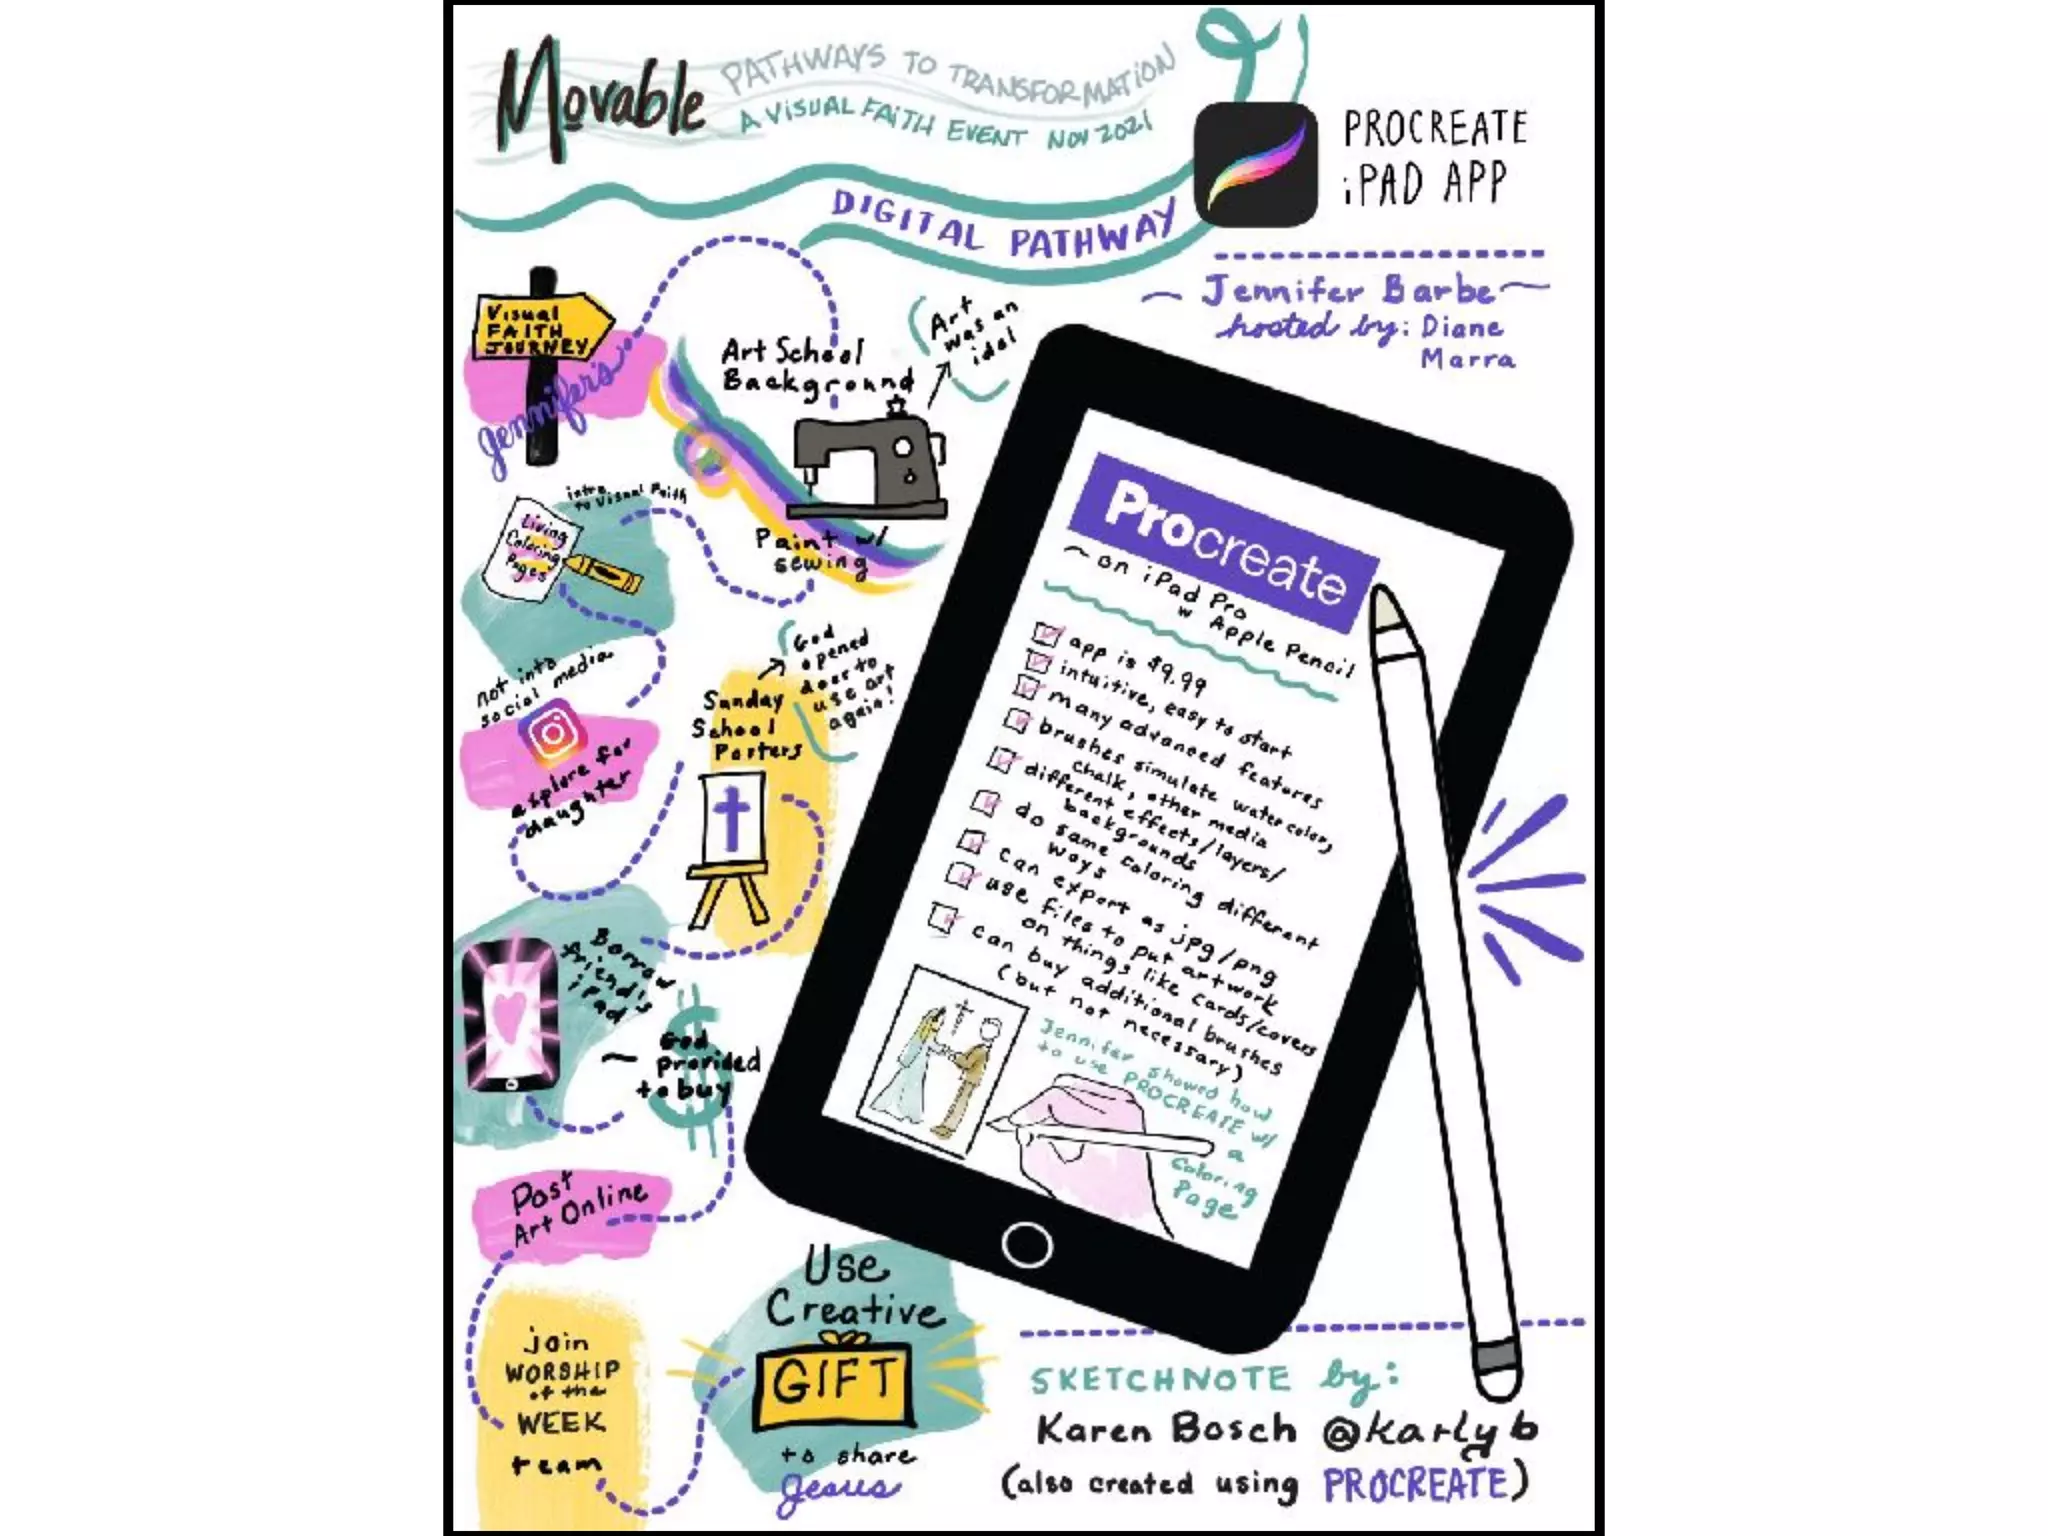 Movable
PATHWAYS TO TRANSFORMATION
A VISUAL FAITH EVENT NOV 2021
DIGITAL PATHWAY
PROCREATE
iPAD APP
Jennifer Barbe
hosted by: Diane
Marra
Visual
FAITH
JOURNEY
Jennifer's
Art School
Background
Art
was an
idol
Paint w/
sewing
intro
to Visual Faith
Living
Coloring
Pages
not into
social media
explore for
daughter
God
opened
door to
use art
again!
Sunday
School
Posters
Borrow
friend's
iPad
God
provided
to buy
Post
Art Online
join
WORSHIP
of the
WEEK
team
Use
Creative
GIFT
to share
Jesus
Procreate
on iPad Pro
w Apple Pencil
app is $9.99
intuitive, easy to start
many advanced features
brushes simulate watercolor,
chalk, other media
different effects/layers/
backgrounds
do same coloring different
ways
can export as jpg/png
use files to put artwork
on things like cards/covers
can buy additional brushes
(but not necessary)
Jennifer showed how
to use PROCREATE w/
a
Coloring
Page
SKETCHNOTE by:
Karen Bosch @karlyb
(also created using PROCREATE)